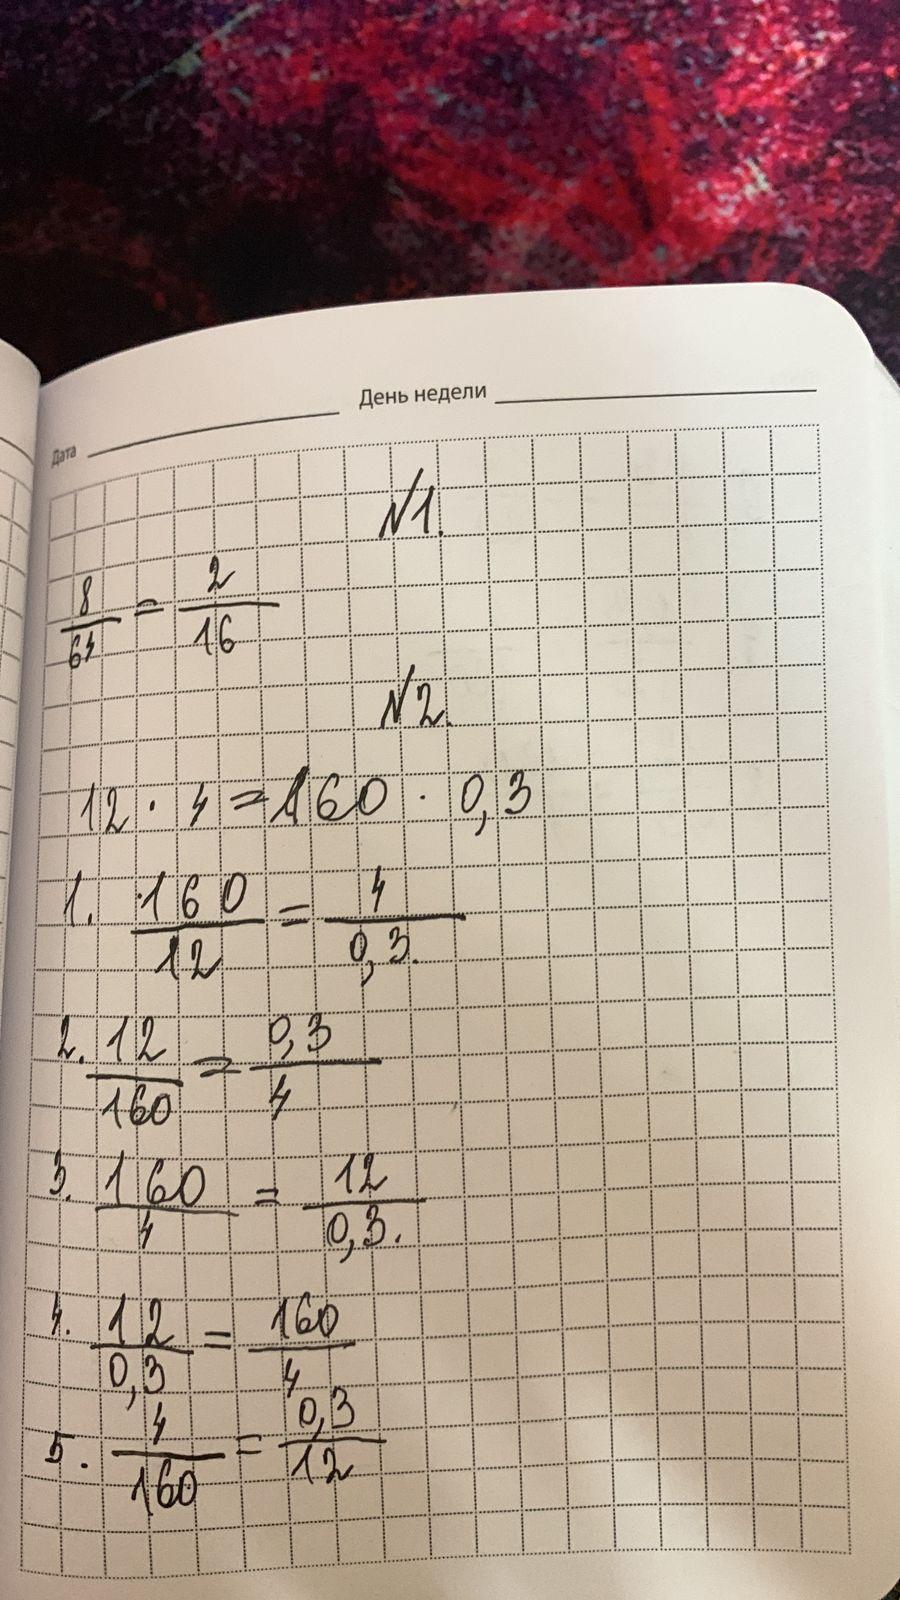 Дата День недели
№1.
8/64 = 2/16
№2.
12 · 4 = 160 · 0,3
1. 160/12 = 4/0,3.
2. 12/160 = 0,3/4
3. 160/4 = 12/0,3.
4. 12/0,3 = 160/4
5. 4/160 = 0,3/12